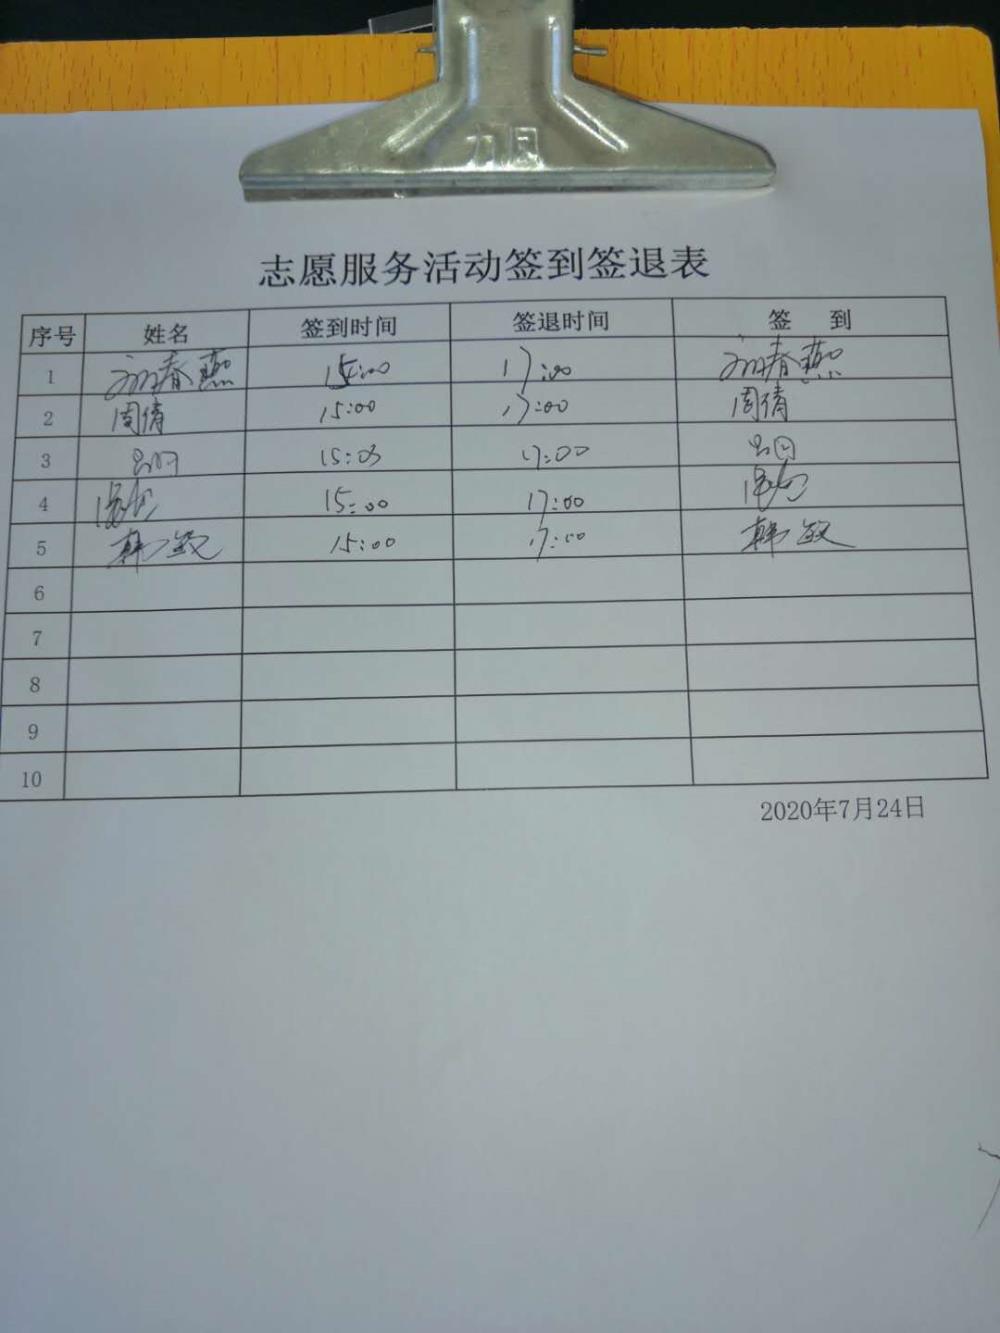 志愿服务活动签到签退表
序号 姓名 签到时间 签退时间 签 到
1 刘春燕 15:00 17:00 刘春燕
2 周倩 15:00 17:00 周倩
3 15:00 17:00
4 15:00 17:00
5 韩敏 15:00 17:00 韩敏
6
7
8
9
10
2020年7月24日